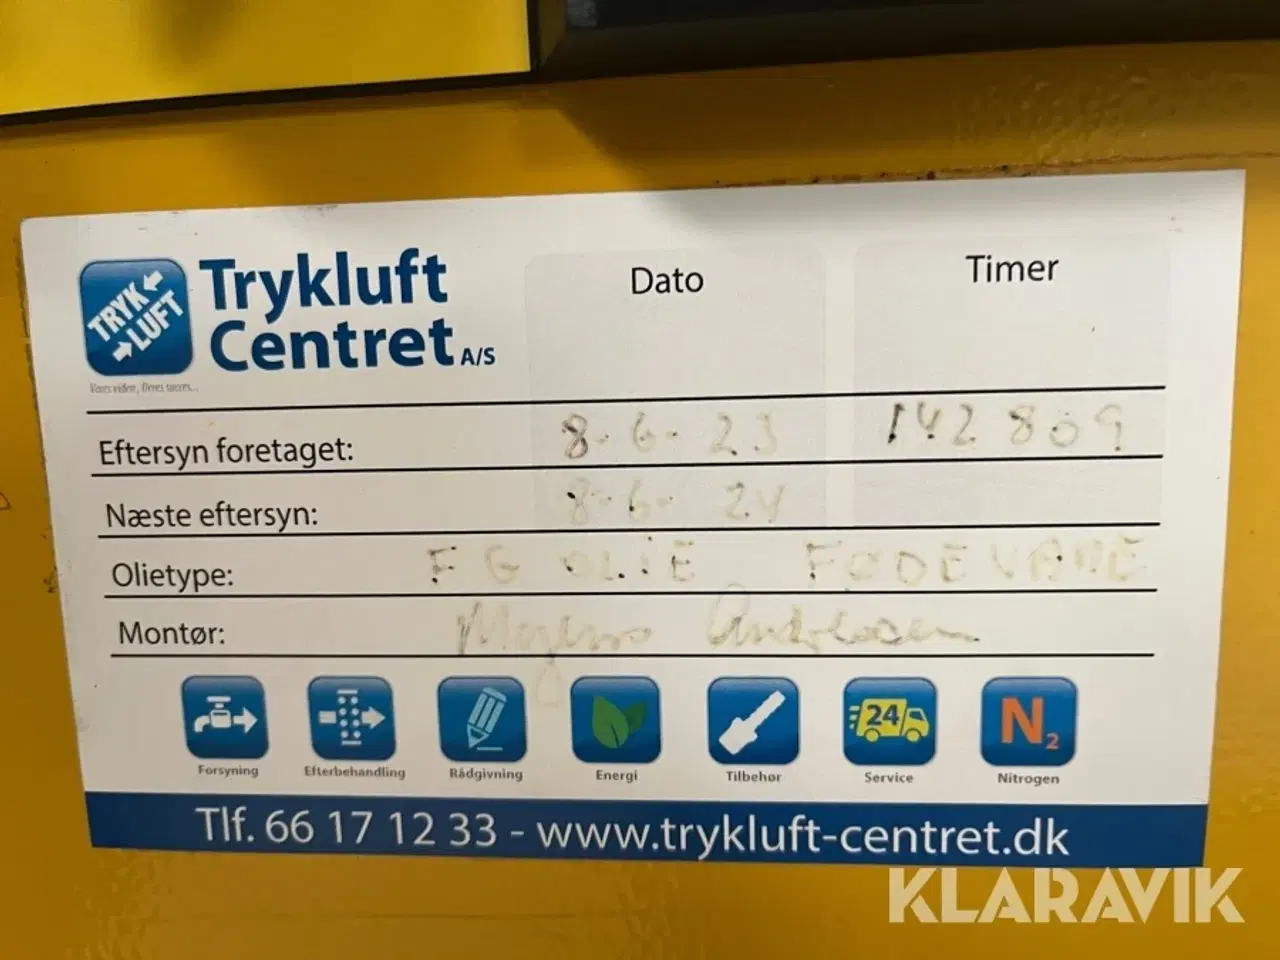 TRYK
LUFT
Trykluft
Centret A/S
Vores viden, Deres succes...
Dato
Timer
Eftersyn foretaget: 8-6-23 142809
Næste eftersyn: 8-6-24
Olietype: FG OLIE FØDEVARE
Montør:
24
N2
Forsyning Efterbehandling Rådgivning Energi Tilbehør Service Nitrogen
Tlf. 66 17 12 33 - www.trykluft-centret.dk
KLARAVIK